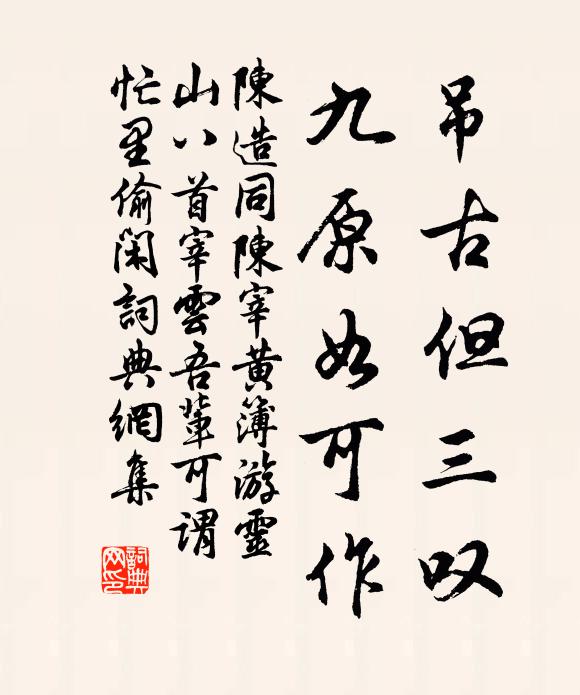 吊古但三叹
九原如可作
陳造同陳宰黄簿游靈
山八首宰雲吾輩可謂
忙里偷閑詞典網集
詞典网印